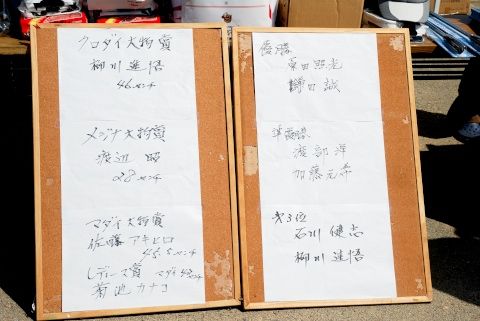 クロダイ大物賞
柳川進悟
46センチ
メジナ大物賞
渡辺 昭
28センチ
マダイ大物賞
佐藤アキヒロ
45.5センチ
レディース賞 マダイ43センチ
菊池カナコ
優勝
照老
鎌田 誠
準優勝
渡部 洋
加藤元希
第3位
石川健志
柳川進悟